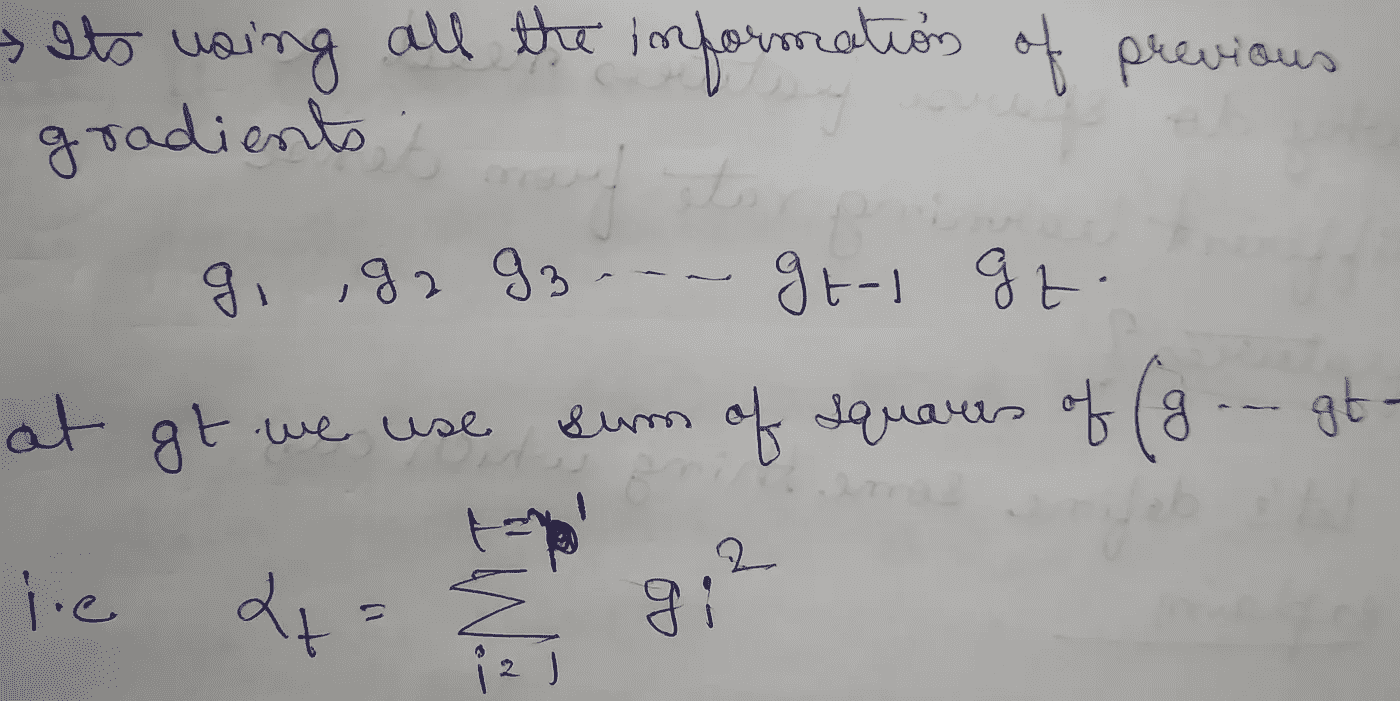 → Its using all the information of previous
gradients
g1 , g2 g3 ---- gt-1 gt.
at gt we use sum of squares of (g --- gt-
i.e αt = Σ gi²
i=1